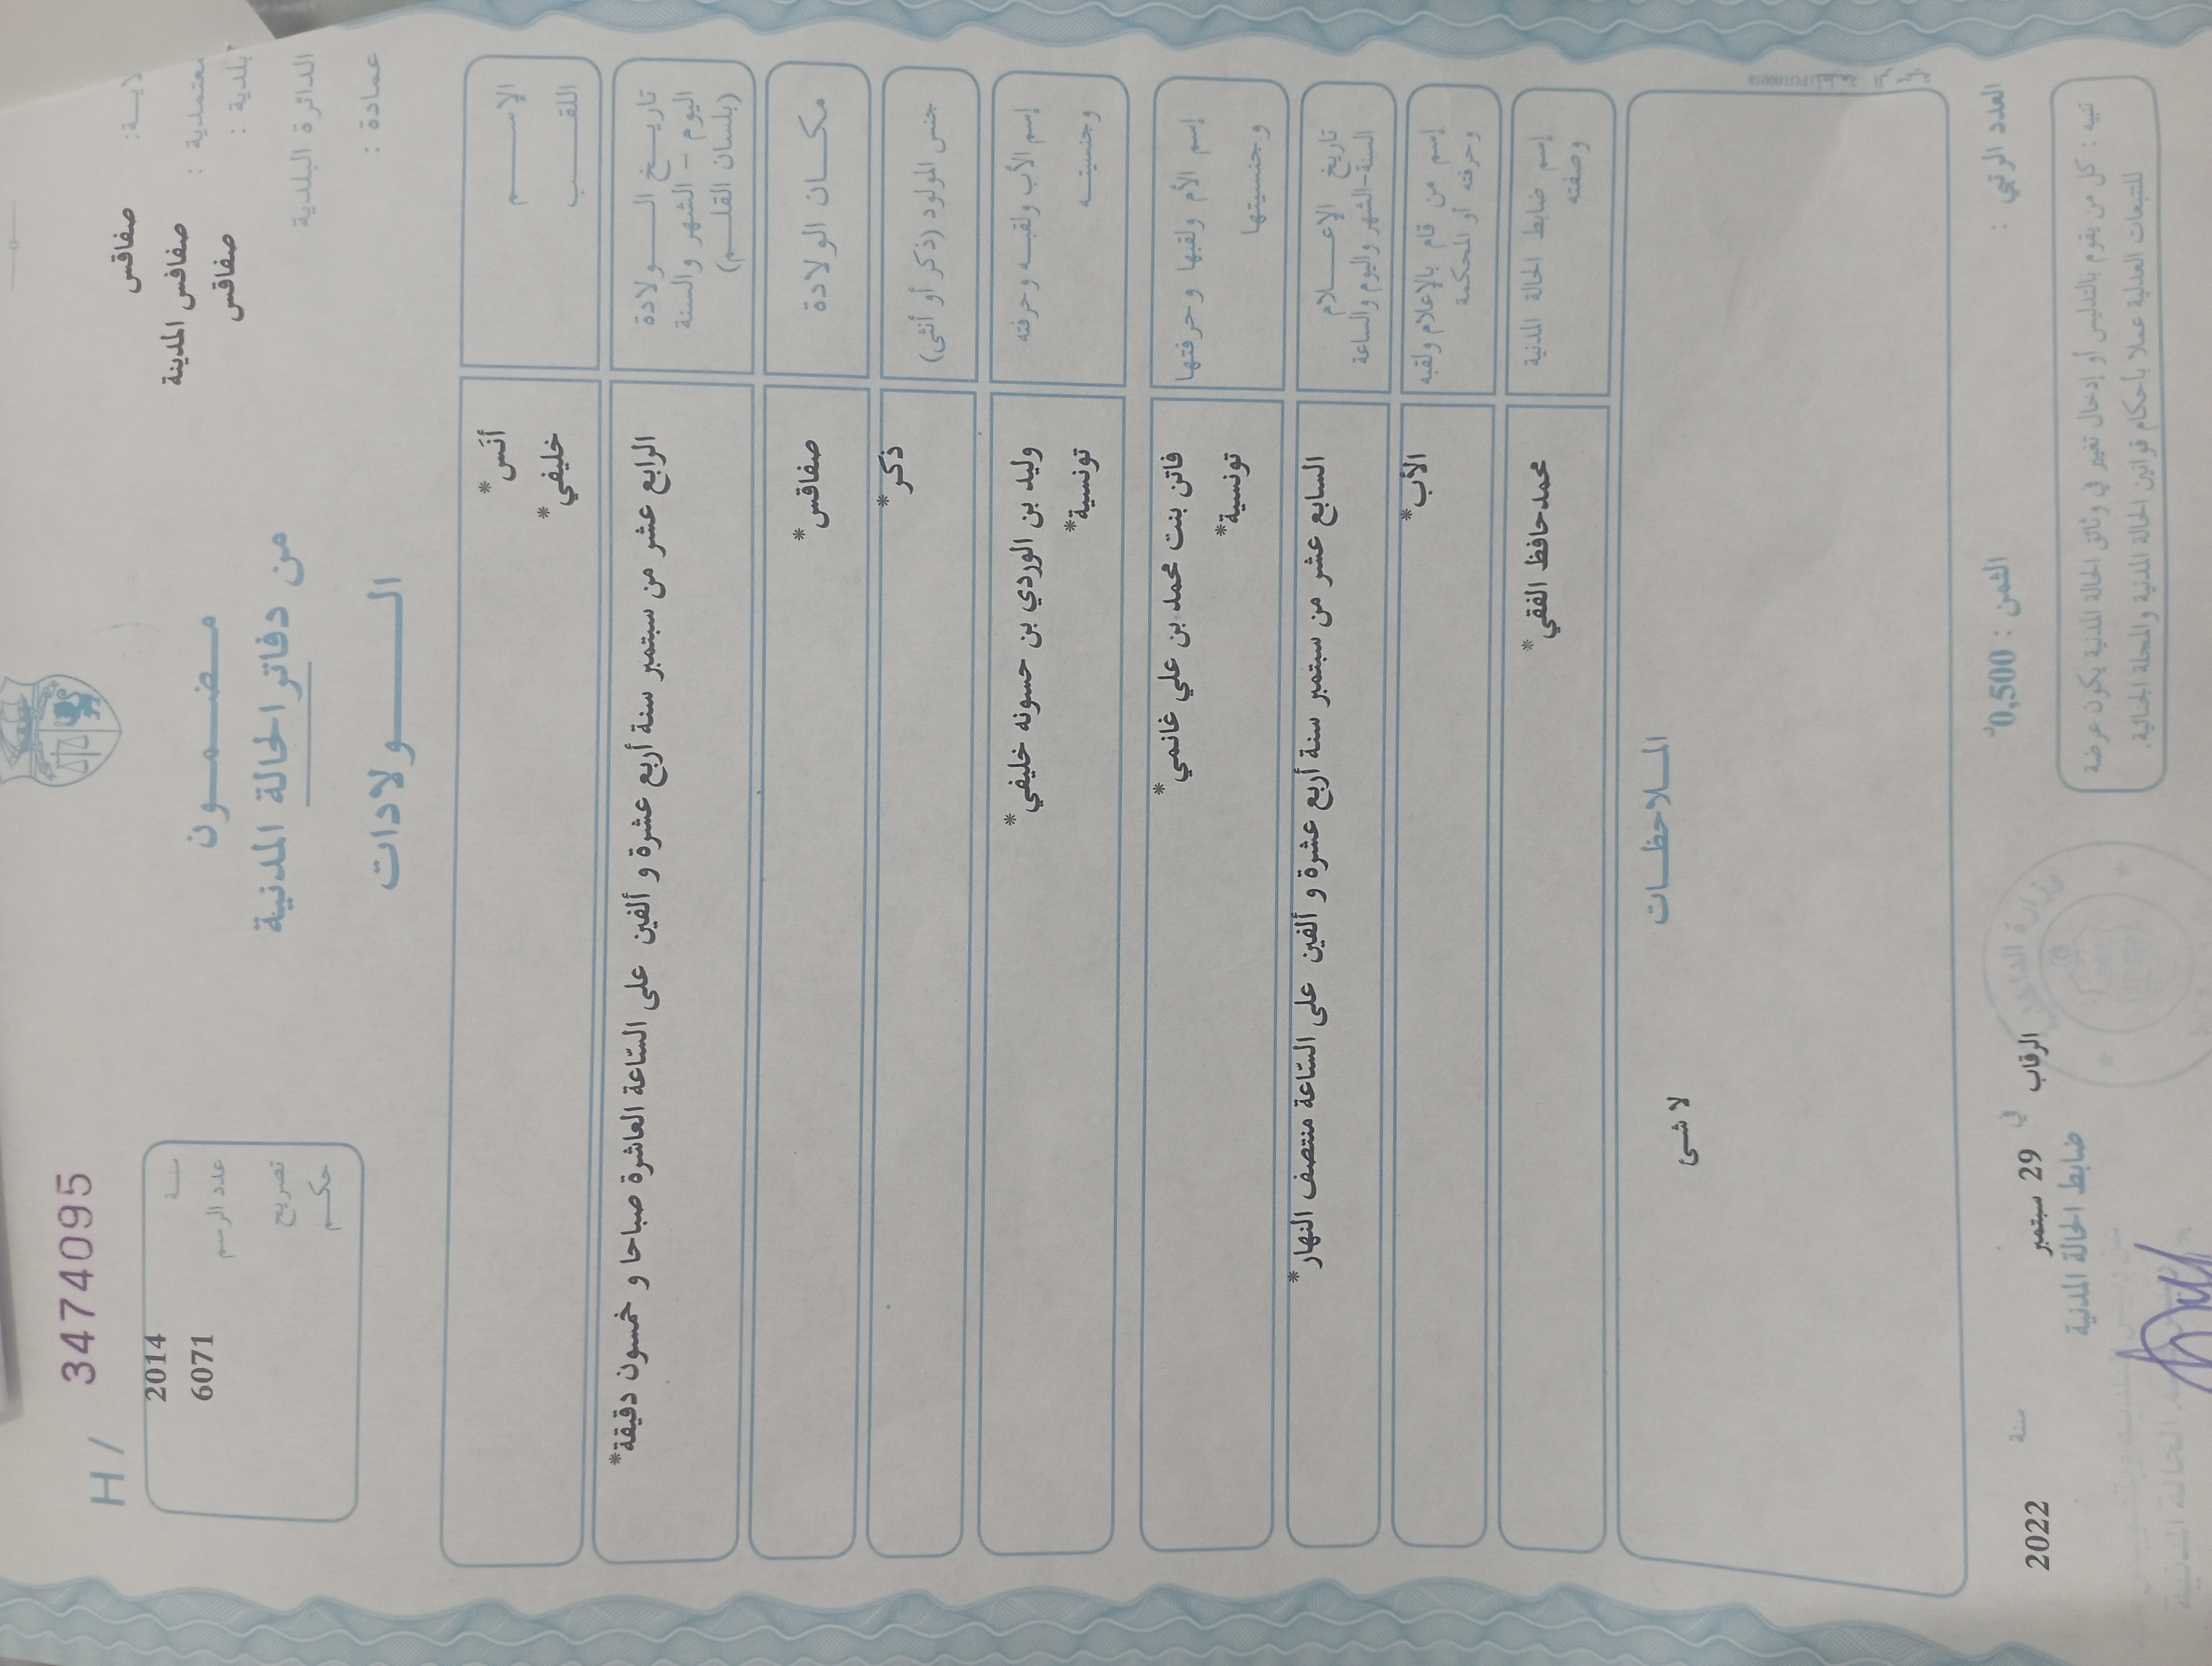 H / 3474095
ولاية: صفاقس
معتمدية : صفاقس المدينة
بلدية : صفاقس
الدائرة البلدية
عمادة :
مضمون
من دفاتر الحالة المدنية
الولادات
سنة 2014
عدد الرسم 6071
تصريح
حكم
الإسم أنَس*
اللقب خليفي*
تاريخ الولادة
اليوم - الشهر والسنة
(بلسان القلم)
الرابع عشر من سبتمبر سنة أربع عشرة و ألفين على السّاعة العاشرة صباحا و خمسون دقيقة*
مكان الولادة صفاقس*
جنس المولود (ذكر أو أنثى) ذكر*
إسم الأب ولقبه وحرفته وليد بن الوردي بن حسونه خليفي*
وجنسيته تونسية*
إسم الأم ولقبها وحرفتها فاتن بنت محمد بن علي غانمي*
وجنسيتها تونسية*
تاريخ الإعلام
السنة-الشهر واليوم والساعة
السابع عشر من سبتمبر سنة أربع عشرة و ألفين على السّاعة منتصف النهار*
إسم من قام بالإعلام ولقبه
وحرفته أو المحكمة
الأب*
إسم ضابط الحالة المدنية
وصفته
محمدحافظ الفقي*
الملاحظات
لا شئ
العدد الرتبي :
الثمن : 0,500د
الرقاب في 29 سبتمبر سنة 2022
ضابط الحالة المدنية
تنبيه : كل من يقوم بالتدليس أو إدخال تغيير في وثائق الحالة المدنية يكون عرضة
للتتبعات العدلية عملا بأحكام قوانين الحالة المدنية والمجلة الجنائية.
وزارة الداخلية